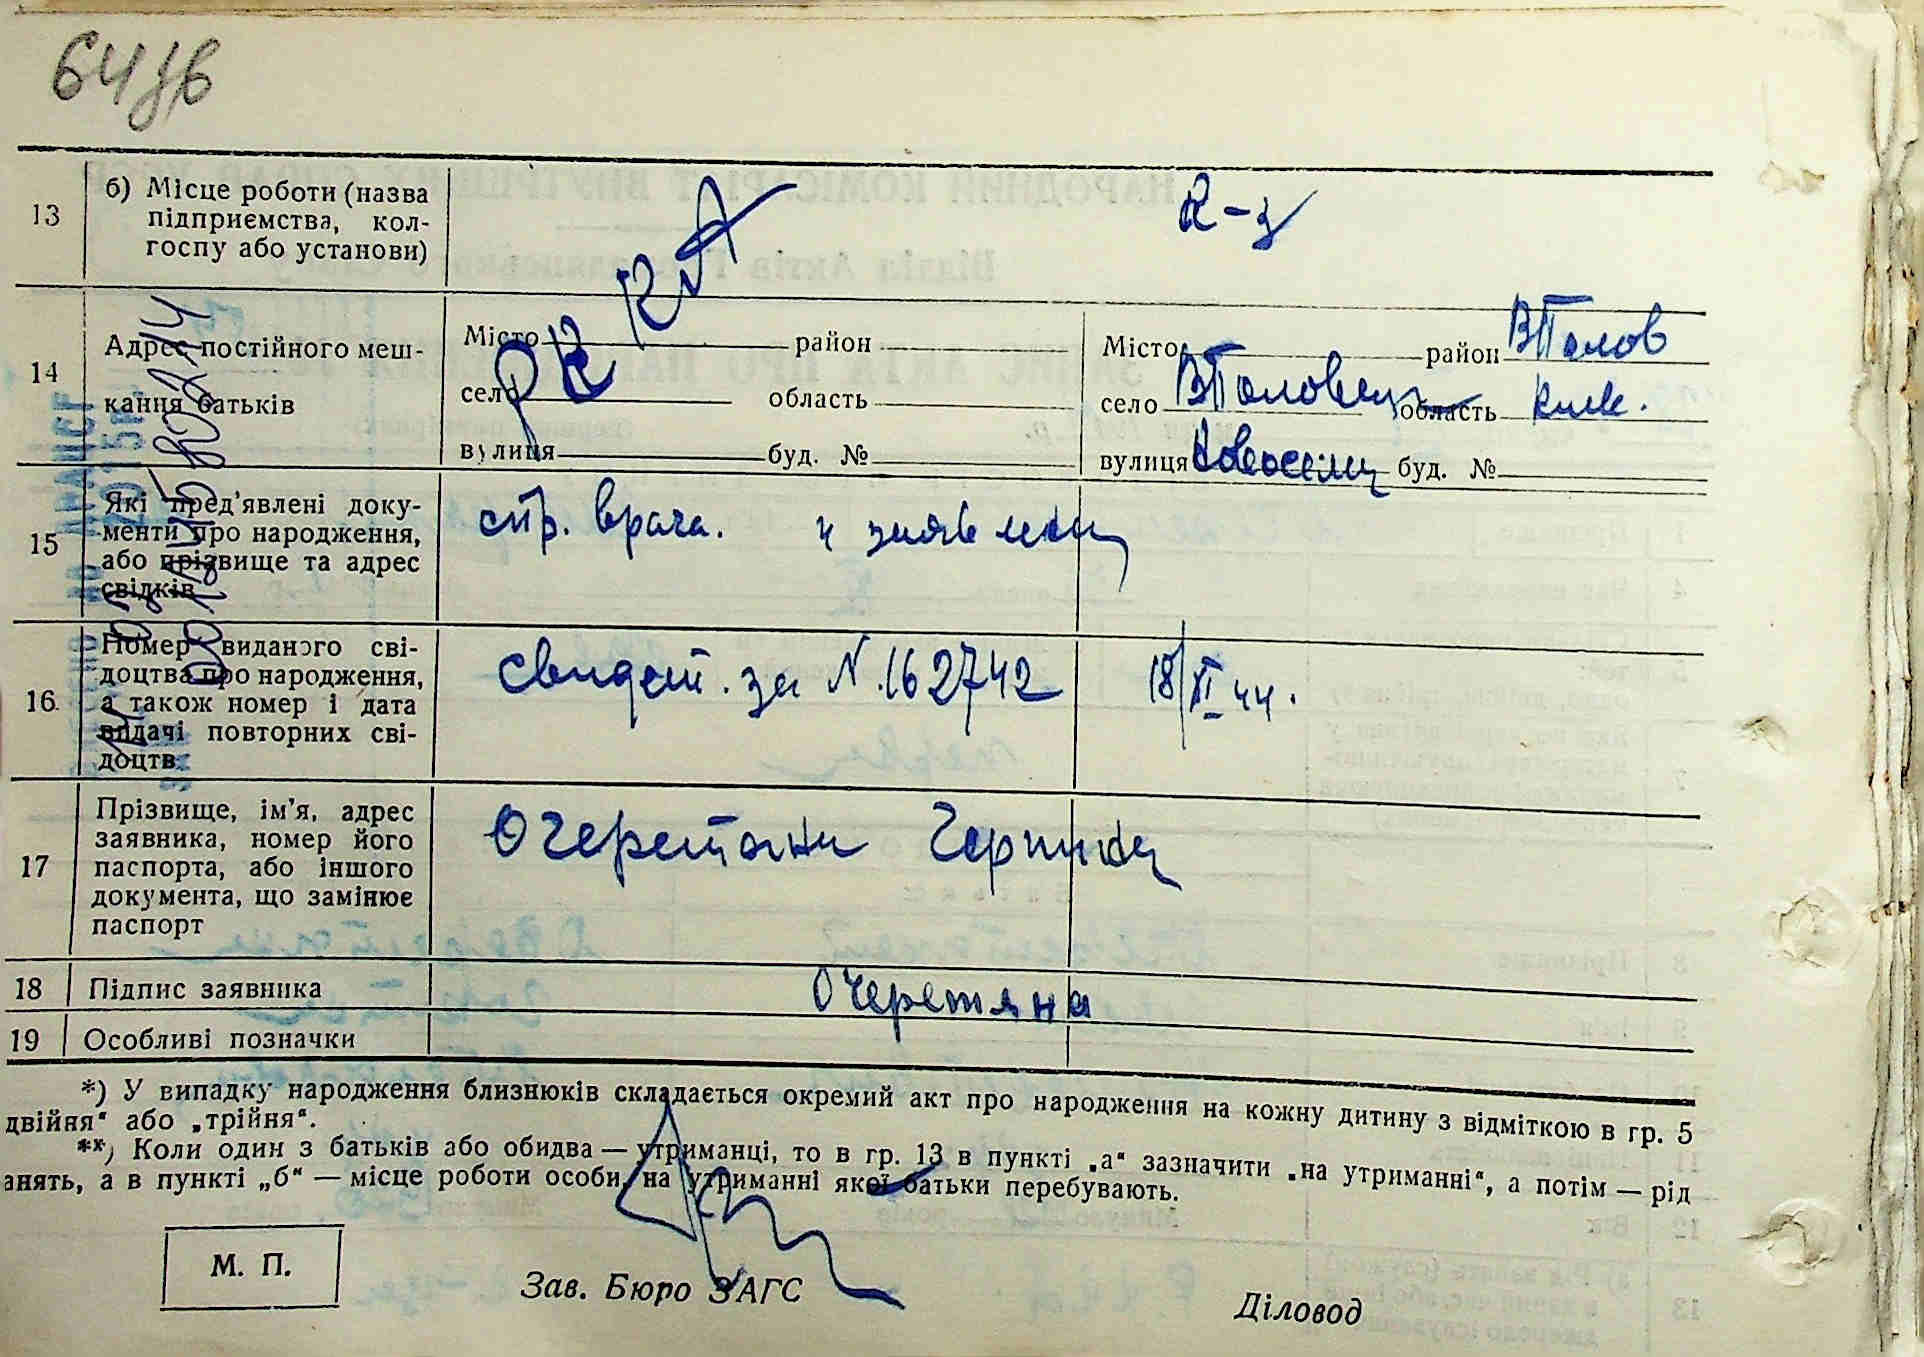 64 зв
13 б) Місце роботи (назва підприємства, колгоспу або установи)
РККА
к-з
14 Адрес постійного мешкання батьків
Місто район
село область
вулиця буд. №
Місто район ВПолов
село ВПоловец область Киев.
вулиця буд. №
15 Які пред'явлені документи про народження, або прізвище та адрес свідків
спр. врача. и заявлен
16 Номер виданого свідоцтва про народження, а також номер і дата видачі повторних свідоцтв
свидет. за N. 162742 18/XI 44.
17 Прізвище, ім'я, адрес заявника, номер його паспорта, або іншого документа, що замінює паспорт
Очеретяни
18 Підпис заявника
Очеретяна
19 Особливі позначки
*) У випадку народження близнюків складається окремий акт про народження на кожну дитину з відміткою в гр. 5
двійня" або „трійня".
**) Коли один з батьків або обидва — утриманці, то в гр. 13 в пункті „а" зазначити „на утриманні", а потім — рід
анять, а в пункті „б" — місце роботи особи, на утриманні якої батьки перебувають.
М. П.
Зав. Бюро ЗАГС
Діловод